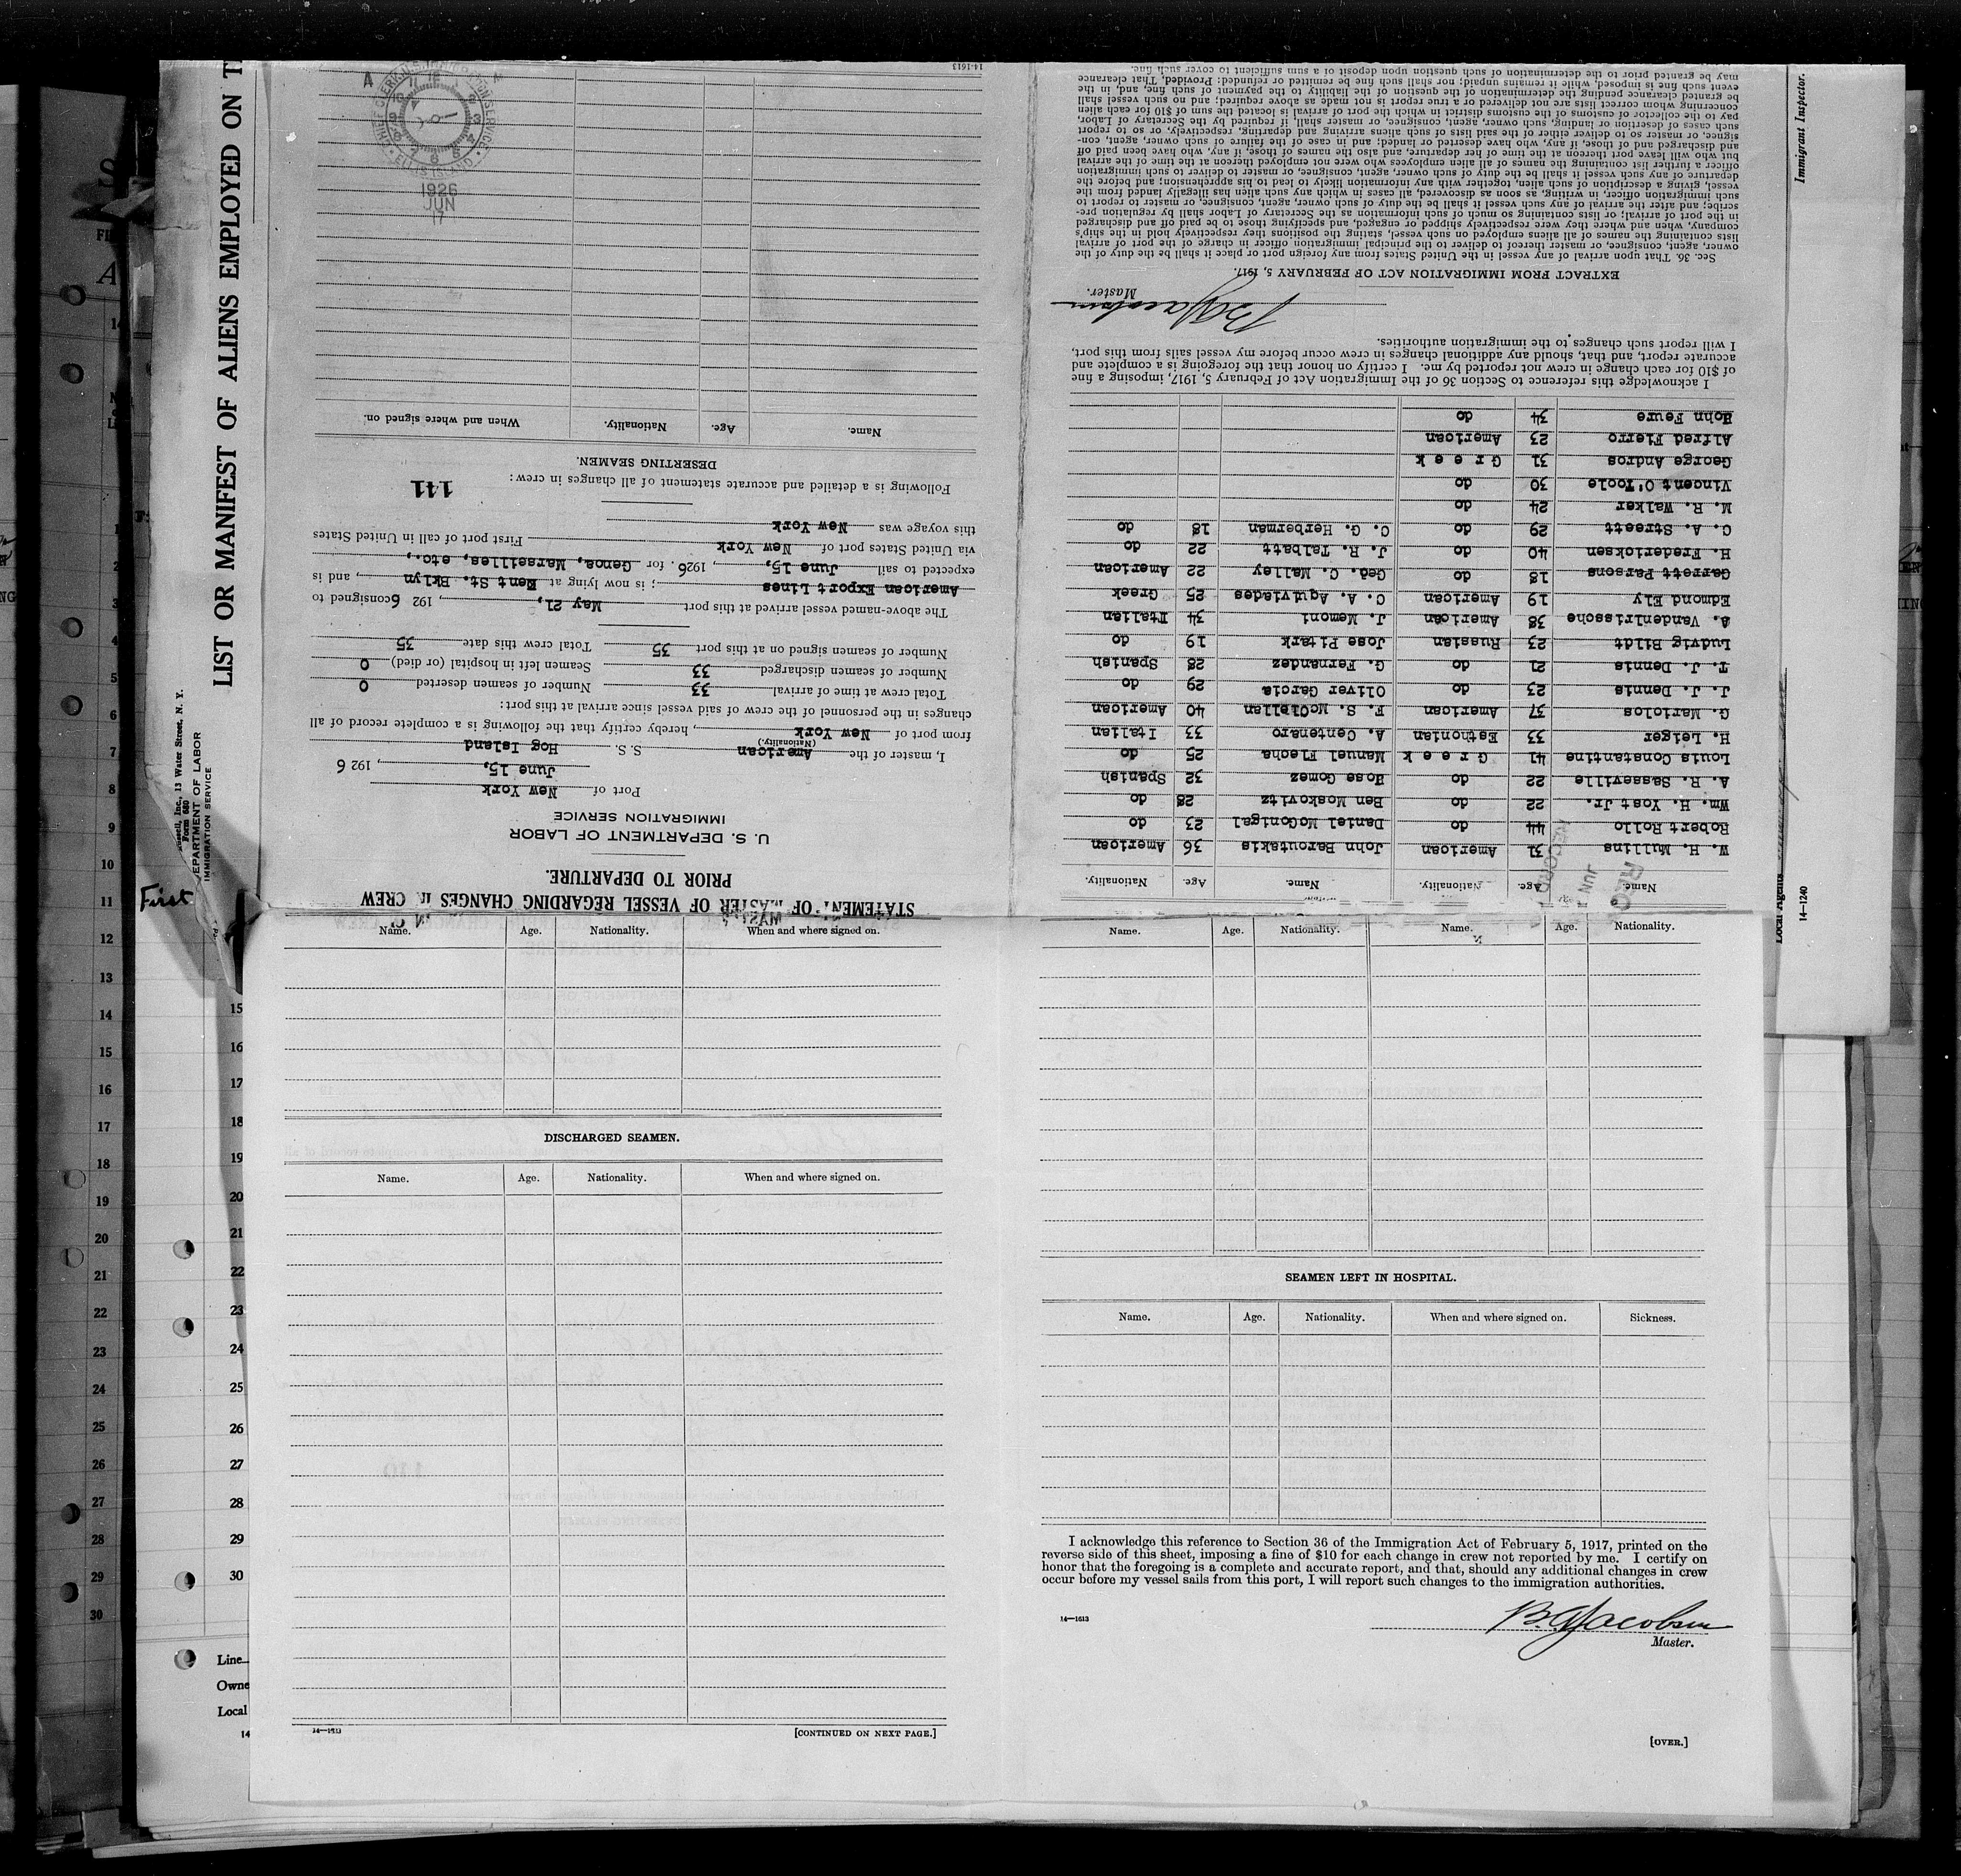 STATEMENT OF MASTER OF VESSEL REGARDING CHANGES IN CREW
PRIOR TO DEPARTURE.
U. S. DEPARTMENT OF LABOR
IMMIGRATION SERVICE
Port of New York
June 15, , 192 6
I, master of the American S. S. Hog Island
(Nationality.)
from port of New York, hereby certify that the following is a complete record of all
changes in the personnel of the crew of said vessel since arrival at this port:
Total crew at time of arrival 33 Number of seamen deserted 0
Number of seamen discharged 33 Seamen left in hospital (or died) 0
Number of seamen signed on at this port 35 Total crew this date 35
The above-named vessel arrived at this port May 21, , 192 6 consigned to
American Export Lines ; is now lying at Kent St. Bklyn , and is
expected to sail June 15, , 1926 . for Genoa, Marseilles, etc.,
via United States port of New York First port of call in United States
this voyage was New York
141
Following is a detailed and accurate statement of all changes in crew:
DESERTING SEAMEN.
Name. Age. Nationality. When and where signed on.
CHIEF CLERK, U.S. IMMIGRATION SERVICE
ELLIS ISLAND
1926
JUN
17
14-1613
Name. Age. Nationality. Name. Age. Nationality.
W. H. Mullins 31 American John Baroutakis 36 American
Robert Rollo 44 do Daniel McGonigal 23 do
Wm. H. Yost Jr. 22 do Ben Moskovitz 28 do
A. R. Sasseville 22 do Hose Gomez 32 Spanish
Louis Constantine 41 Greek Manuel Flecha 25 do
H. Leiger 33 Esthonian A. Centenaro 33 Italian
G. Mariolos 37 American F. S. McClellan 40 American
J. J. Dennis 23 do Oliver Garcia 29 do
T. J. Dennis 21 do G. Fernandez 28 Spanish
Ludvig Bildt 23 Russian Jose Pitark 19 do
A. Vandenlrissche 38 American J. Memoni 34 Italian
Edmond Ely 19 American C. A. Aquviades 25 Greek
Garrett Parsons 18 do Ged. C. Malley 22 American
H. Fredericksen 40 do J. R. Talbatt 22 do
C. A. Streett 29 do C. G. Herberman 18 do
M. R. Walker 24 do
Vincent O'Toole 30 do
George Andros 31 Greek
Alfred Fierro 23 American
John Feure 34 do
I acknowledge this reference to Section 36 of the Immigration Act of February 5, 1917, imposing a fine
of $10 for each change in crew not reported by me. I certify on honor that the foregoing is a complete and
accurate report, and that, should any additional changes in crew occur before my vessel sails from this port,
I will report such changes to the immigration authorities.
B G Jacobsen
Master.
EXTRACT FROM IMMIGRATION ACT OF FEBRUARY 5, 1917.
Sec. 36. That upon arrival of any vessel in the United States from any foreign port or place it shall be the duty of the
owner, agent, consignee, or master thereof to deliver to the principal immigration officer in charge of the port of arrival
lists containing the names of all aliens employed on such vessel, stating the positions they respectively hold in the ship's
company, when and where they were respectively shipped or engaged, and specifying those to be paid off and discharged
in the port of arrival; or lists containing so much of such information as the Secretary of Labor shall by regulation pre-
scribe; and after the arrival of any such vessel it shall be the duty of such owner, agent, consignee, or master to report to
such immigration officer, in writing, as soon as discovered, all cases in which any such alien has illegally landed from the
vessel, giving a description of such alien, together with any information likely to lead to his apprehension; and before the
departure of any such vessel it shall be the duty of such owner, agent, consignee, or master to deliver to such immigration
officer a further list containing the names of all alien employees who were not employed thereon at the time of the arrival
but who will leave port thereon at the time of her departure, and also the names of those, if any, who have been paid off
and discharged and of those, if any, who have deserted or landed; and in case of the failure of such owner, agent, con-
signee, or master so to deliver either of the said lists of such aliens arriving and departing, respectively, or so to report
such cases of desertion or landing, such owner, agent, consignee, or master shall, if required by the Secretary of Labor,
pay to the collector of customs of the customs district in which the port of arrival is located the sum of $10 for each alien
concerning whom correct lists are not delivered or a true report is not made as above required; and no such vessel shall
be granted clearance pending the determination of the question of the liability to the payment of such fine, and, in the
event such fine is imposed, while it remains unpaid; nor shall such fine be remitted or refunded: Provided, That clearance
may be granted prior to the determination of such question upon deposit of a sum sufficient to cover such fine.
Immigrant Inspector.
Local Agents
14-1240
LIST OR MANIFEST OF ALIENS EMPLOYED ON T
13 Water Street, N. Y.
Form 680
DEPARTMENT OF LABOR
IMMIGRATION SERVICE
First
Name. Age. Nationality. When and where signed on.
DISCHARGED SEAMEN.
Name. Age. Nationality. When and where signed on.
14-1613 [CONTINUED ON NEXT PAGE.]
Name. Age. Nationality. Name. Age. Nationality.
SEAMEN LEFT IN HOSPITAL.
Name. Age. Nationality. When and where signed on. Sickness.
I acknowledge this reference to Section 36 of the Immigration Act of February 5, 1917, printed on the
reverse side of this sheet, imposing a fine of $10 for each change in crew not reported by me. I certify on
honor that the foregoing is a complete and accurate report, and that, should any additional changes in crew
occur before my vessel sails from this port, I will report such changes to the immigration authorities.
14-1613
B. G Jacobsen
Master.
[OVER.]
Line
Owne
Local
14